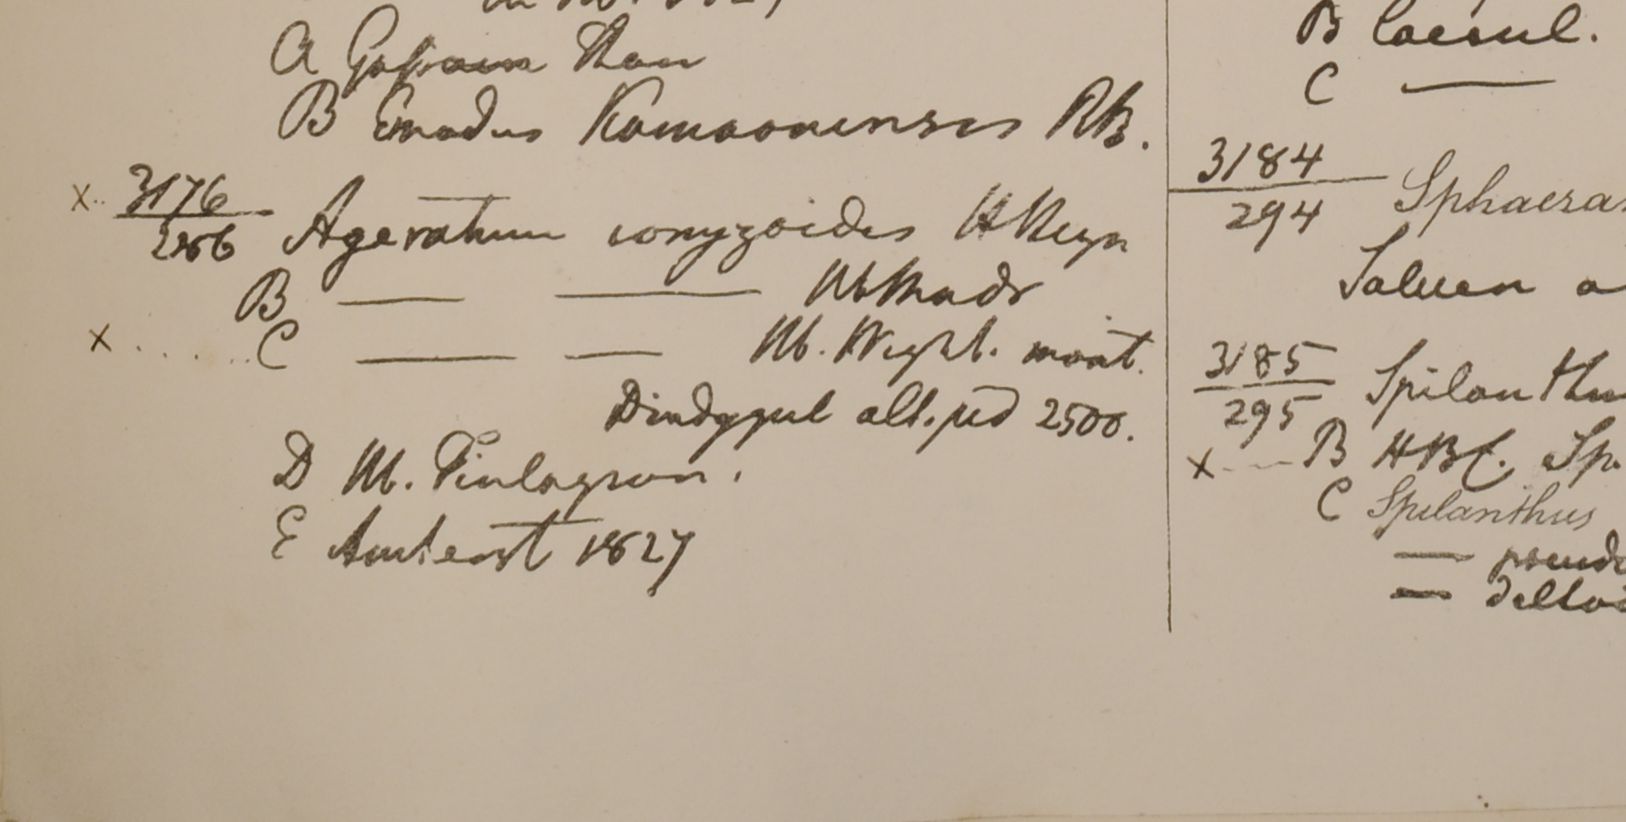 A Gosain Than
B Emodus Kamaonensis RB.
x.. 3176
286 Ageratum conyzoides H Heyn
B — — Hb Madr
x ...... C — — Hb. Wight. mont.
Dindygul alt. ped 2500.
D Hb. Finlayson.
E Amherst 1827
B Caesul.
C —
3184
294 Sphaera
Saluen a
3185
295 Spilanthu
x --- B HBC. Sp.
C Spilanthus
— pseudo
— deltoi